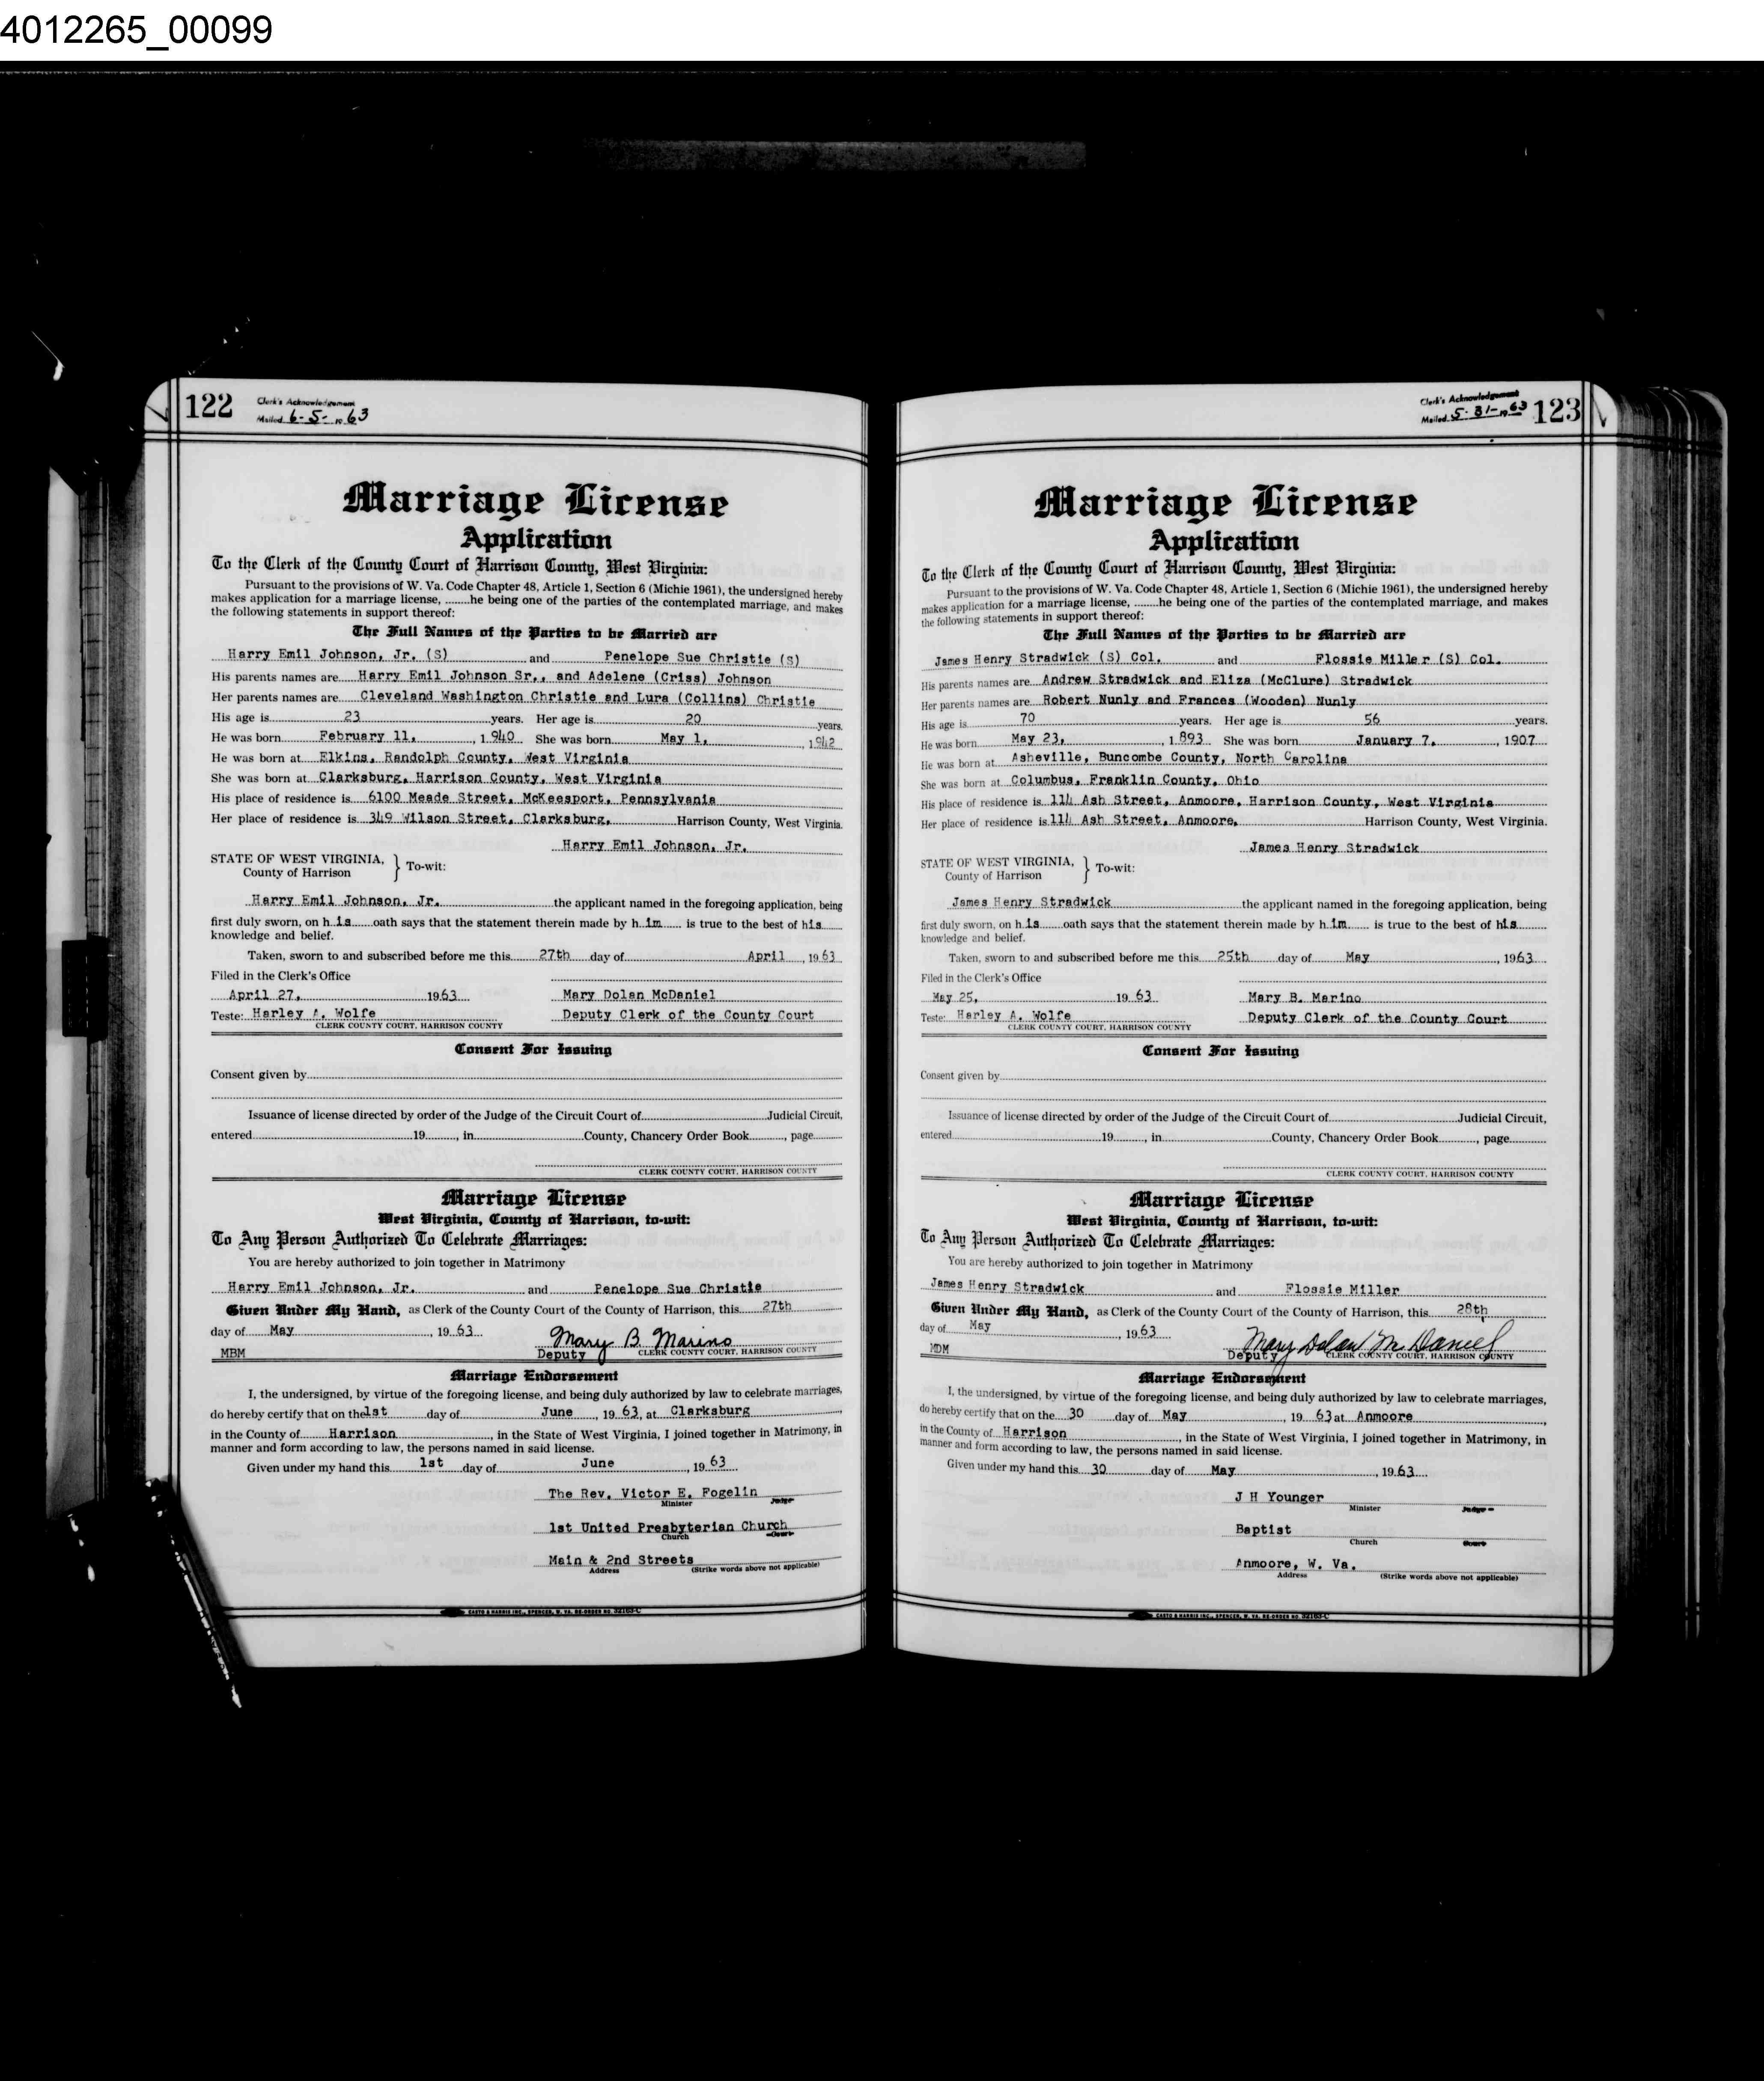 4012265_00099
122
Clerk's Acknowledgement
Mailed 6-5-1963
Marriage License
Application
To the Clerk of the County Court of Harrison County, West Virginia:
Pursuant to the provisions of W. Va. Code Chapter 48, Article 1, Section 6 (Michie 1961), the undersigned hereby
makes application for a marriage license, ........he being one of the parties of the contemplated marriage, and makes
the following statements in support thereof:
The Full Names of the Parties to be Married are
Harry Emil Johnson, Jr. (S) and Penelope Sue Christie (S)
His parents names are Harry Emil Johnson Sr., and Adelene (Criss) Johnson
Her parents names are Cleveland Washington Christie and Lura (Collins) Christie
His age is 23 years. Her age is 20 years.
He was born February 11, 1940 She was born May 1, 1942
He was born at Elkins, Randolph County, West Virginia
She was born at Clarksburg, Harrison County, West Virginia
His place of residence is 6100 Meade Street, McKeesport, Pennsylvania
Her place of residence is 349 Wilson Street, Clarksburg, Harrison County, West Virginia.
Harry Emil Johnson, Jr.
STATE OF WEST VIRGINIA,
County of Harrison } To-wit:
Harry Emil Johnson, Jr. the applicant named in the foregoing application, being
first duly sworn, on his oath says that the statement therein made by him is true to the best of his
knowledge and belief.
Taken, sworn to and subscribed before me this 27th day of April, 1963
Filed in the Clerk's Office
April 27, 1963 Mary Dolan McDaniel
Teste: Harley A. Wolfe Deputy Clerk of the County Court
CLERK COUNTY COURT, HARRISON COUNTY
Consent For Issuing
Consent given by
Issuance of license directed by order of the Judge of the Circuit Court of Judicial Circuit,
entered 19, in County, Chancery Order Book, page
CLERK COUNTY COURT, HARRISON COUNTY
Marriage License
West Virginia, County of Harrison, to-wit:
To Any Person Authorized To Celebrate Marriages:
You are hereby authorized to join together in Matrimony
Harry Emil Johnson, Jr. and Penelope Sue Christie
Given Under My Hand, as Clerk of the County Court of the County of Harrison, this 27th
day of May, 1963 Mary B. Marino
MBM Deputy CLERK COUNTY COURT, HARRISON COUNTY
Marriage Endorsement
I, the undersigned, by virtue of the foregoing license, and being duly authorized by law to celebrate marriages,
do hereby certify that on the 1st day of June, 1963, at Clarksburg,
in the County of Harrison, in the State of West Virginia, I joined together in Matrimony, in
manner and form according to law, the persons named in said license.
Given under my hand this 1st day of June, 1963
The Rev. Victor E. Fogelin
Minister Judge
1st United Presbyterian Church
Church Court
Main & 2nd Streets
Address (Strike words above not applicable)
CASTO & HARRIS INC., SPENCER, W. VA. RE-ORDER NO. 32163-C
Clerk's Acknowledgement
Mailed 5-31-1963
123
Marriage License
Application
To the Clerk of the County Court of Harrison County, West Virginia:
Pursuant to the provisions of W. Va. Code Chapter 48, Article 1, Section 6 (Michie 1961), the undersigned hereby
makes application for a marriage license, ........he being one of the parties of the contemplated marriage, and makes
the following statements in support thereof:
The Full Names of the Parties to be Married are
James Henry Stradwick (S) Col. and Flossie Miller (S) Col.
His parents names are Andrew Stradwick and Eliza (McClure) Stradwick
Her parents names are Robert Nunly and Frances (Wooden) Nunly
His age is 70 years. Her age is 56 years.
He was born May 23, 1893 She was born January 7, 1907
He was born at Asheville, Buncombe County, North Carolina
She was born at Columbus, Franklin County, Ohio
His place of residence is 114 Ash Street, Anmoore, Harrison County, West Virginia
Her place of residence is 114 Ash Street, Anmoore, Harrison County, West Virginia.
James Henry Stradwick
STATE OF WEST VIRGINIA,
County of Harrison } To-wit:
James Henry Stradwick the applicant named in the foregoing application, being
first duly sworn, on his oath says that the statement therein made by him is true to the best of his
knowledge and belief.
Taken, sworn to and subscribed before me this 25th day of May, 1963
Filed in the Clerk's Office
May 25, 1963 Mary B. Marino
Teste: Harley A. Wolfe Deputy Clerk of the County Court
CLERK COUNTY COURT, HARRISON COUNTY
Consent For Issuing
Consent given by
Issuance of license directed by order of the Judge of the Circuit Court of Judicial Circuit,
entered 19, in County, Chancery Order Book, page
CLERK COUNTY COURT, HARRISON COUNTY
Marriage License
West Virginia, County of Harrison, to-wit:
To Any Person Authorized To Celebrate Marriages:
You are hereby authorized to join together in Matrimony
James Henry Stradwick and Flossie Miller
Given Under My Hand, as Clerk of the County Court of the County of Harrison, this 28th
day of May, 1963 Mary Dolan McDaniel
MDM Deputy CLERK COUNTY COURT, HARRISON COUNTY
Marriage Endorsement
I, the undersigned, by virtue of the foregoing license, and being duly authorized by law to celebrate marriages,
do hereby certify that on the 30 day of May, 1963 at Anmoore,
in the County of Harrison, in the State of West Virginia, I joined together in Matrimony, in
manner and form according to law, the persons named in said license.
Given under my hand this 30 day of May, 1963
J H Younger
Minister Judge
Baptist
Church Court
Anmoore, W. Va.
Address (Strike words above not applicable)
CASTO & HARRIS INC., SPENCER, W. VA. RE-ORDER NO. 32163-C